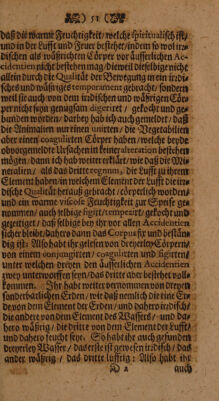 51
daß die warme Feuchtigkeit/ welche spiritualisch ist/
und in der Lufft und Feuer bestehet/ indem so wol irr-
dischen als wäßrichten Cörper vor äusserlichen Ac-
cidentien nicht bestehen mag/ dieweil dieselbige nicht
allein durch die Qualität der Bewegung in ein irrdi-
sches und wäßriges temperament gebracht/ sondern
weil sie auch von dem irrdischen und wäßrigen Cör-
per nicht seyn genugsam digerirt/ gekocht und ge-
bunden worden/ darbey hab ich auch gemeldet/ daß
die Animalien nur einen unirten/ die Vegetabilien
aber einen coagulirten Cörper haben/ welche beyde
obvorgemeldte Ursachen in keiner alteration bestehen
mögen/ dann ich hab weiter erklärt/ wie daß die Mi-
neralien/ als das dritte regnum, die Lufft zu ihrem
Element haben/ in welchem Element der Lufft die irr-
dische Qualität herauß gebracht/ cörperlich worden/
und ein warme viscose Feuchtigkeit zur Speise ge-
nommen/ auch selbige figirt/ temperirt/ gekocht und
gezeitiget/ daß selbige bey ihr vor allen Accidentien
sicher bleibt/ dahero dann das Corpus fix und bestän-
dig ist: Also habt ihr gelesen von dreyerley Cörpern/
von einem conjungirten/ coagulirten und figirten/
unter welchen dreyen den äusserlichen Accidentien
zwey unterworffen seyn/ das dritte aber bestehet voll-
kommen. Ihr habt weiter vernommen von dreyen
sonderbarlichen Erden/ wie daß nemlich die eine Er-
de von dem Element der Erden/ und dahero irrdisch/
die andere von dem Element des Wassers/ und da-
hero wäßrig/ die dritte von dem Element der Lufft/
und dahero feucht sey. So habt ihr auch gefunden
dreyerley Wasser/ das erste ist gewesen irrdisch/ das
ander wäßrig/ das dritte lufftig: Also habt ihr
D 2 auch